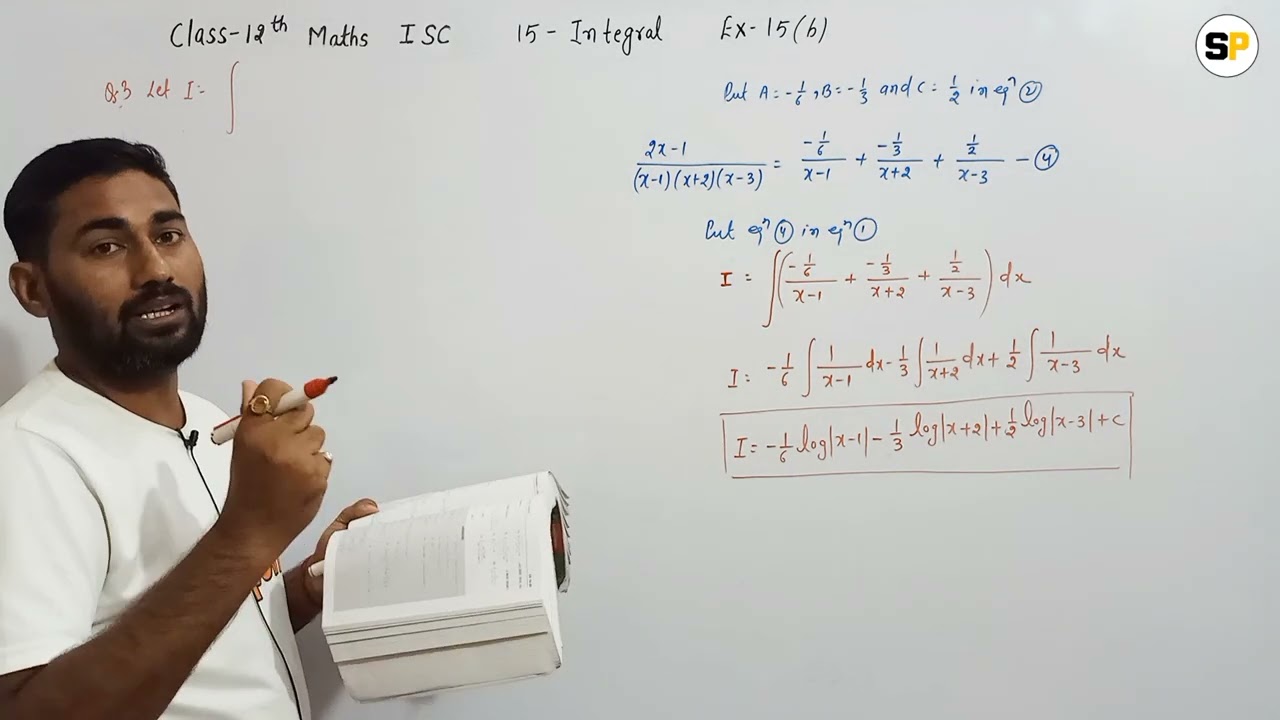 Class-12th Maths ISC 15 - Integral Ex-15(b)
SP
Q.3 Let I = ∫
Put A = -1/6, B = -1/3 and C = 1/2 in eqⁿ ②
(2x-1)/((x-1)(x+2)(x-3)) = (-1/6)/(x-1) + (-1/3)/(x+2) + (1/2)/(x-3) - ④
Put eqⁿ ④ in eqⁿ ①
I = ∫((-1/6)/(x-1) + (-1/3)/(x+2) + (1/2)/(x-3)) dx
I = -1/6 ∫ 1/(x-1) dx - 1/3 ∫ 1/(x+2) dx + 1/2 ∫ 1/(x-3) dx
I = -1/6 log|x-1| - 1/3 log|x+2| + 1/2 log|x-3| + C